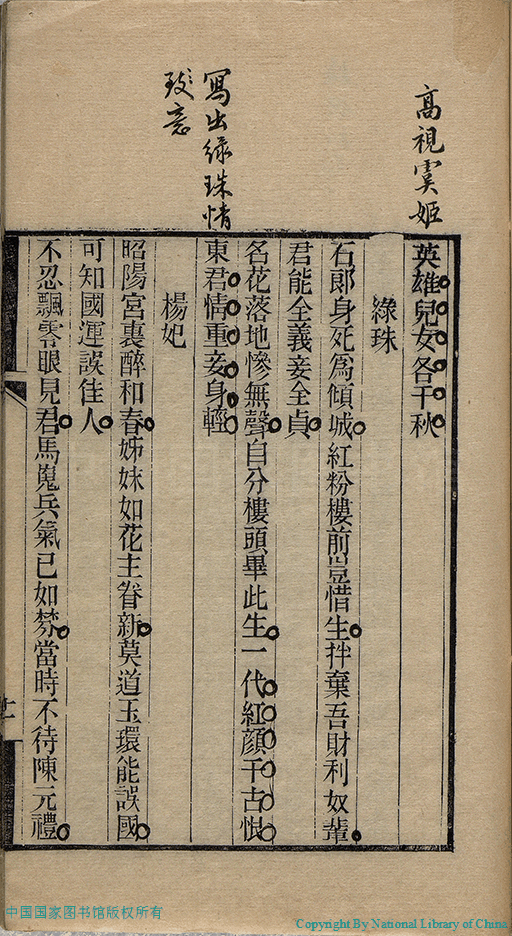 高視虞姬
英雄兒女各千秋
綠珠
右郎身死爲傾城紅粉樓前豈惜生拌棄吾財利奴輩
君能全義妾全貞
寫出綠珠情
致意
名花落地慘無聲自分樓頭畢此生一代紅顔千古恨
東君情重妾身輕
楊妃
昭陽宮裏醉和春姊妹如花主眷新莫道玉環能誤國
可知國運誤佳人
不忍飄零眼見君馬嵬兵氣已如棼當時不待陳元禮
中国国家图书馆版权所有
Copyright By National Library of China